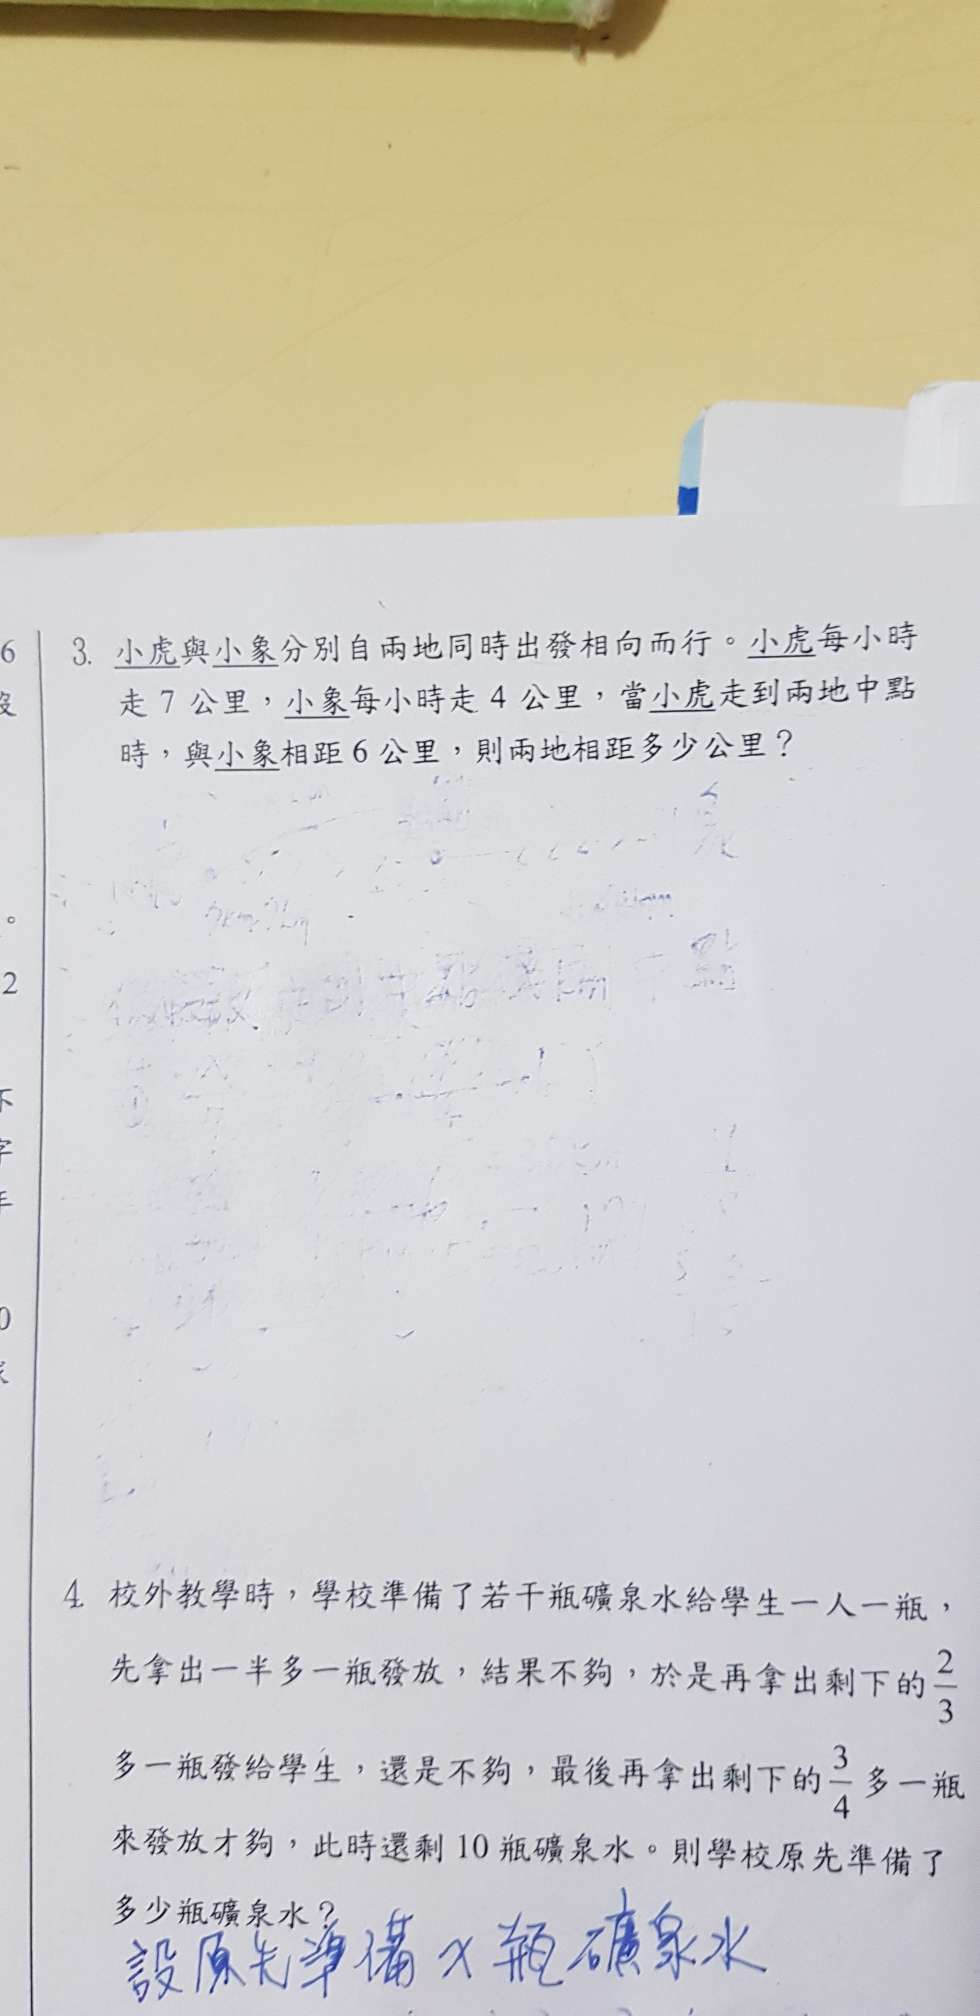 6
3. 小虎與小象分別自兩地同時出發相向而行。小虎每小時
走 7 公里，小象每小時走 4 公里，當小虎走到兩地中點
時，與小象相距 6 公里，則兩地相距多少公里？
象
。
2
不
字
年
0
4. 校外教學時，學校準備了若干瓶礦泉水給學生一人一瓶，
先拿出一半多一瓶發放，結果不夠，於是再拿出剩下的 2/3
多一瓶發給學生，還是不夠，最後再拿出剩下的 3/4 多一瓶
來發放才夠，此時還剩 10 瓶礦泉水。則學校原先準備了
多少瓶礦泉水？
設原先準備 x 瓶礦泉水